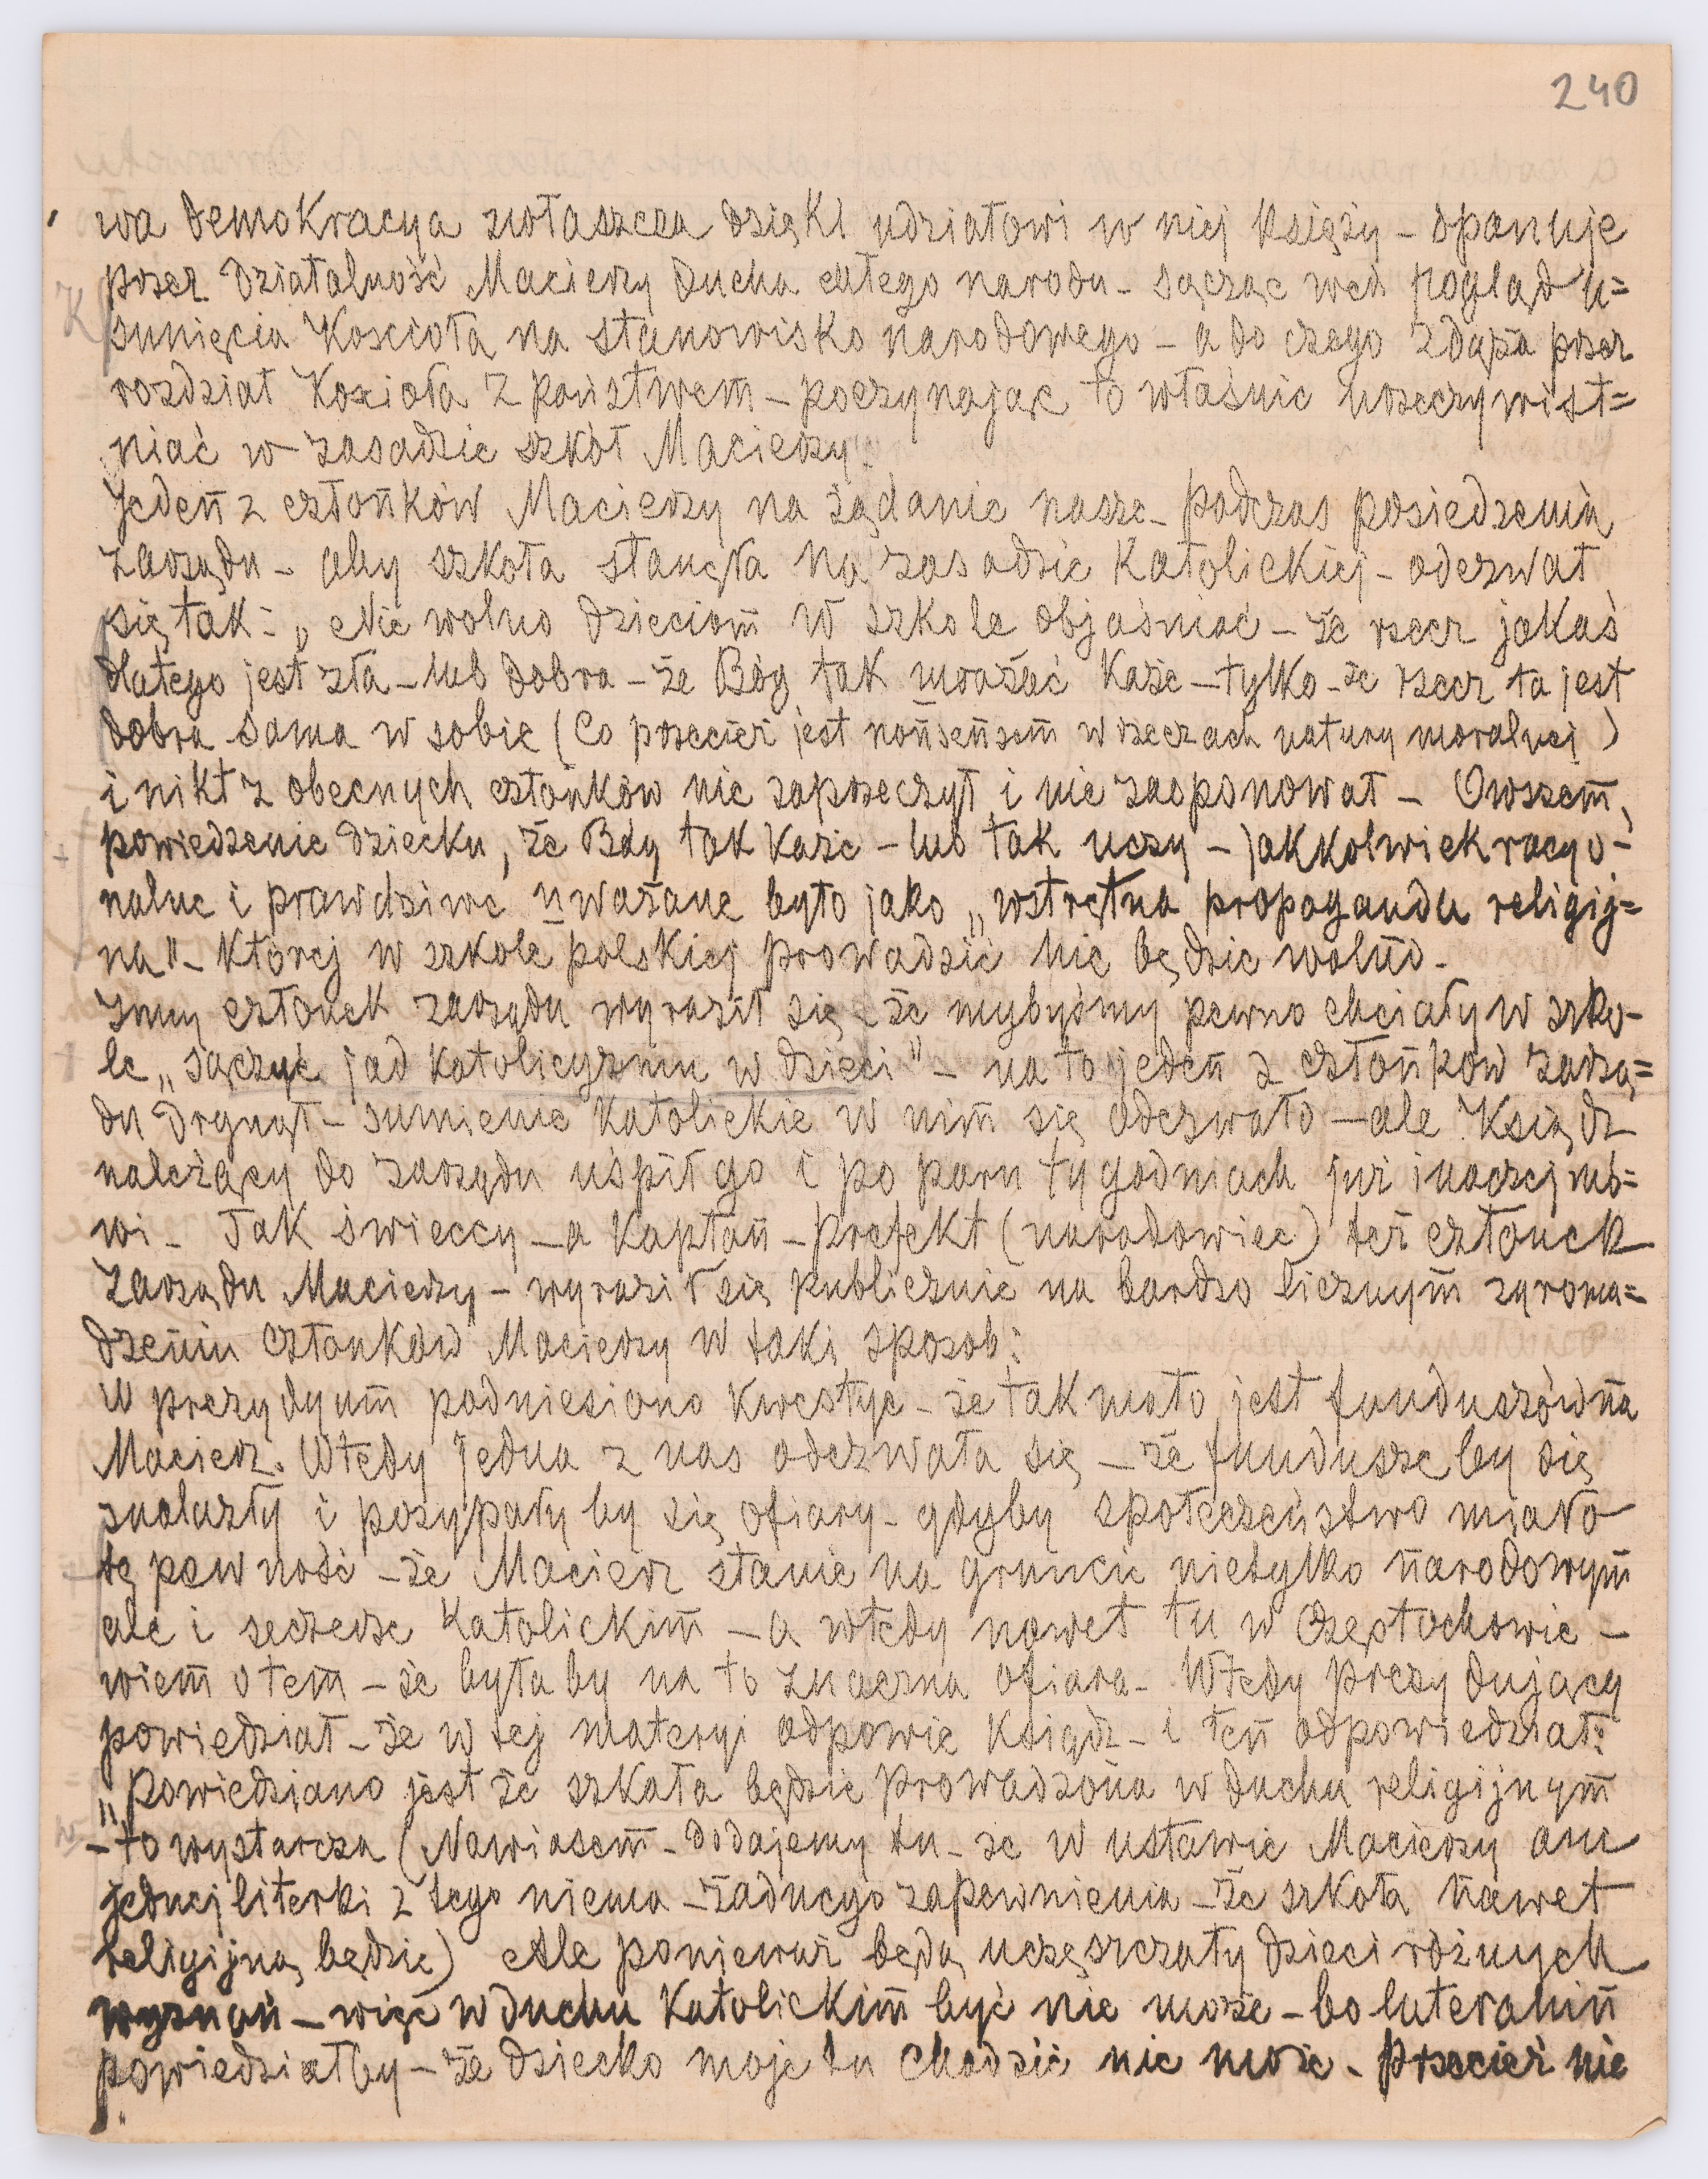 240
wa demokracya zwłaszcza dzięki udziałowi w niej księży – opanuje
przez działalność Macierzy ducha całego narodu – sącząc weń pogląd u=
sunięcia Kościoła na stanowisko narodowego – a do czego zdąża przez
rozdział Kościoła z państwem – poczynając to właśnie urzeczywist=
niać w zasadzie szkół Macierzy".
Jeden z członków Macierzy na żądanie nasze – podczas posiedzenia
zarządu – aby szkoła stanęła na zasadzie katolickiej – odezwał
się tak: „Nie wolno dzieciom w szkole objaśniać – że rzecz jakaś
dlatego jest zła – lub dobra – że Bóg tak uważać każe – tylko – że rzecz ta jest
dobra sama w sobie (Co przecież jest nonsensem w rzeczach natury moralnej)
i nikt z obecnych członków nie zaprzeczył i nie zaoponował – Owszem,
powiedzenie dziecku, że Bóg tak każe – lub tak uczy – jakkolwiek racyo-
nalne i prawdziwe uważane było jako „wstrętna propaganda religij=
na" – której w szkole polskiej prowadzić nie będzie wolno –
Inny członek zarządu wyraził się – że mybyśmy pewno chciały w szko-
le „sączyć jad katolicyzmu w dzieci" – na to jeden z członków zarzą=
du drgnął – sumienie katolickie w nim się odezwało – ale Ksiądz
należący do zarządu uśpił go i po paru tygodniach już inaczej mó=
wi – Tak świeccy – a kapłan – prefekt (narodowiec) też członek
Zarządu Macierzy – wyraził się publicznie na bardzo licznym zgroma=
dzeniu członków Macierzy w taki sposob:
W prezydyum podniesiono kwestyę – że tak mało jest funduszów na
Macierz. Wtedy jedna z nas odezwała się – że fundusze by się
znalazły i posypały by się ofiary – gdyby społeczeństwo miało
tę pewność – że Macierz stanie na gruncie nietylko narodowym
ale i szczerze katolickim – a wtedy nawet tu w Częstochowie –
wiem o tem – że była by na to znaczna ofiara – Wtedy prezydujący
powiedział – że w tej materyi odpowie ksiądz – i ten odpowiedział:
"Powiedziano jest że szkoła będzie prowadzona w duchu religijnym
– to wystarcza (Nawiasem – dodajemy tu – że w ustawie Macierzy ani
jednej literki z tego niema – żadnego zapewnienia – że szkoła nawet
religijną będzie) Ale ponieważ będą uczęszczały dzieci różnych
wyznań – więc w duchu katolickim być nie może – bo luteranin
powiedziałby – że dziecko moje tu chodzić nie może – przecież nie